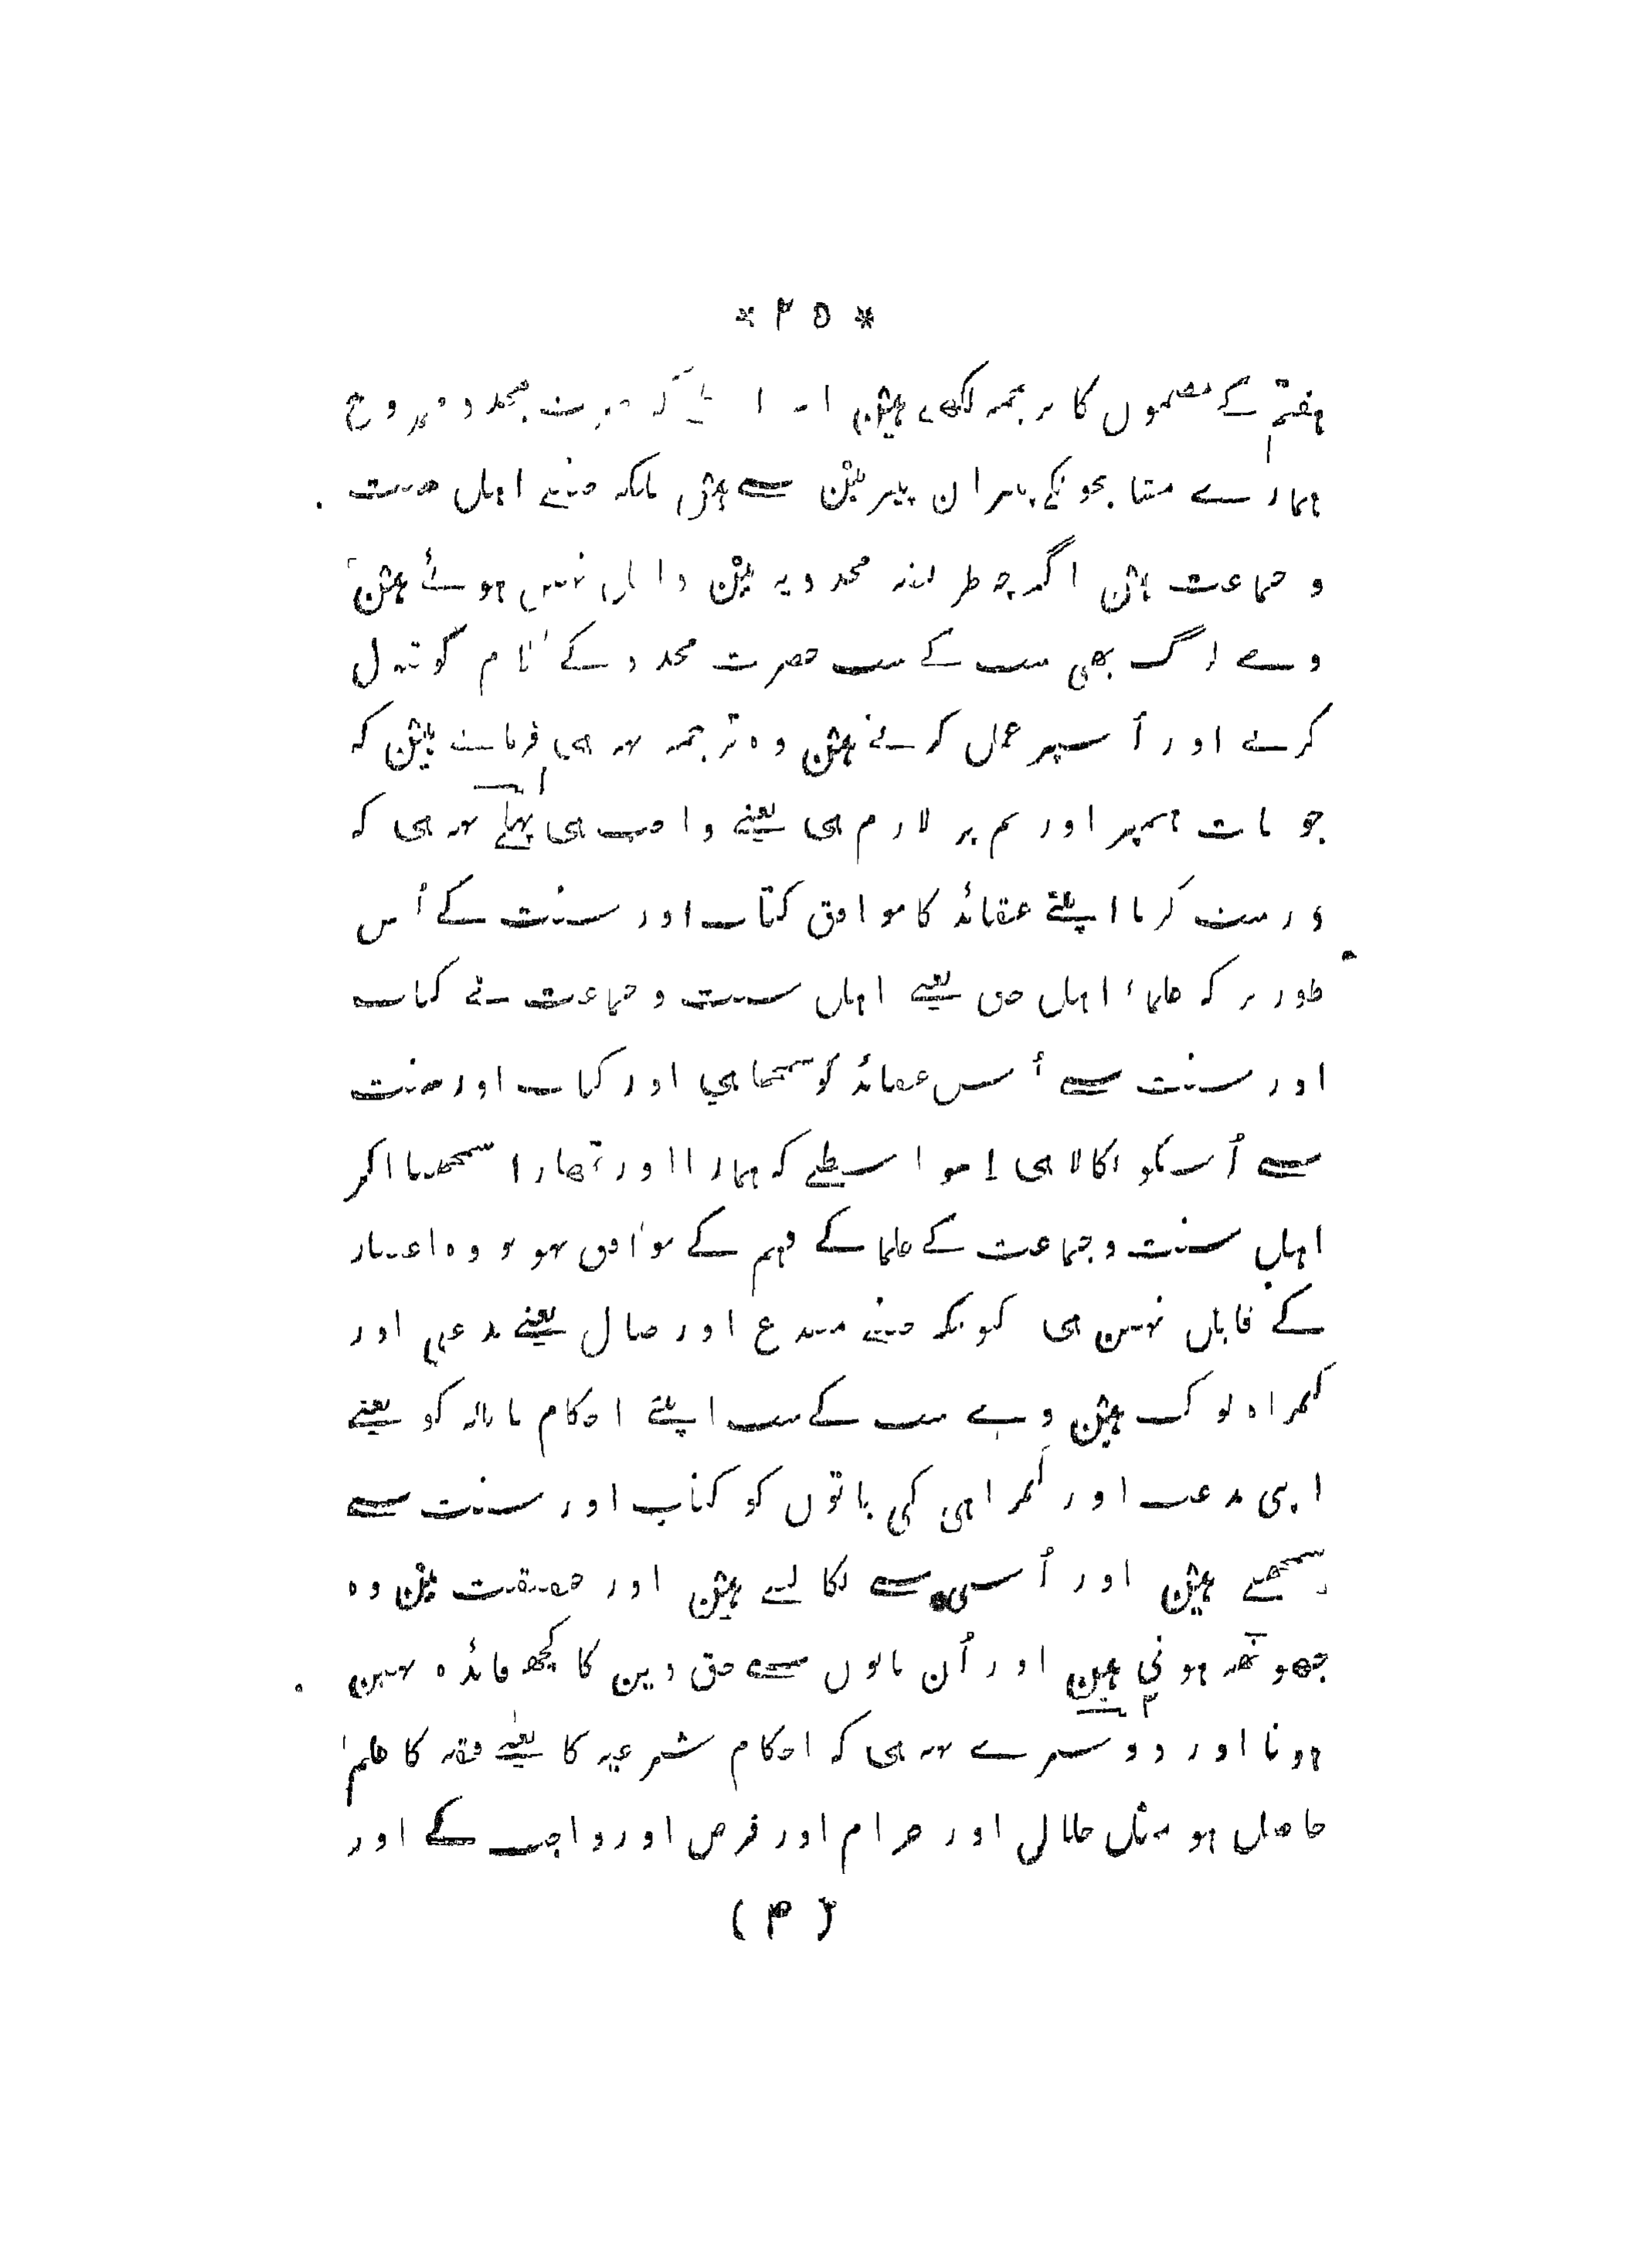 * ۲۵ *
ہفتم کے مضموں کا ترجمہ لکھتے ہیں کہ حضرت مجدد ممدوح
ہمارے مشایخونکے پیران پیر میں سے ہیں بلکہ جتنے اہل سنت
و جماعت ہیں اگرچہ طریقہ مجددیہ میں داخل نہیں ہوئے ہیں
وے لوگ بھی سب کے سب حضرت مجدد کے کلام کو قبول
کرتے اور أسپر عمل کرتے ہیں وہ ترجمہ یہہ ہی فرماتے ہیں کہ
جو بات ہمپر اور تم پر لازم ہی یعنے واجب ہی پہلے یہہ ہی کہ
درست کرنا اپنے عقائد کا موافق کتاب اور سنت کے أس
طور پر کہ علماء اہل حق یعنے اہل سنت و جماعت نے کتاب
اور سنت سے أس عقائد کو سمجھا ہی اور کتاب اور سنت
سے أسکو نکالا ہی اسواسطے کہ ہمارا اور تمھارا سمجھنا اگر
اہل سنت و جماعت کے علما کے فہم کے موافق نہو تو وہ اعتبار
کے قابل نہیں ہی کیونکہ جتنے مبتدع اور ضال یعنے بدعتی اور
گمراہ لوگ ہیں وے سب کے سب اپنے احکام باطلہ کو یعنے
اپنی بدعت اور گمراہی کی باتوں کو کتاب اور سنت سے
سمجھتے ہیں اور أسی سے نکالتے ہیں اور حقیقت میں وہ
جھوٹھہ ہوتی ہیں اور أن باتوں سے حق دین کا کچھ فائدہ نہیں
ہوتا اور دوسرے یہہ ہی کہ احکام شرعیہ کا یعنے فقہ کا علم
حاصل ہو مثل حلال اور حرام اور فرض اور واجب کے اور
(۴)